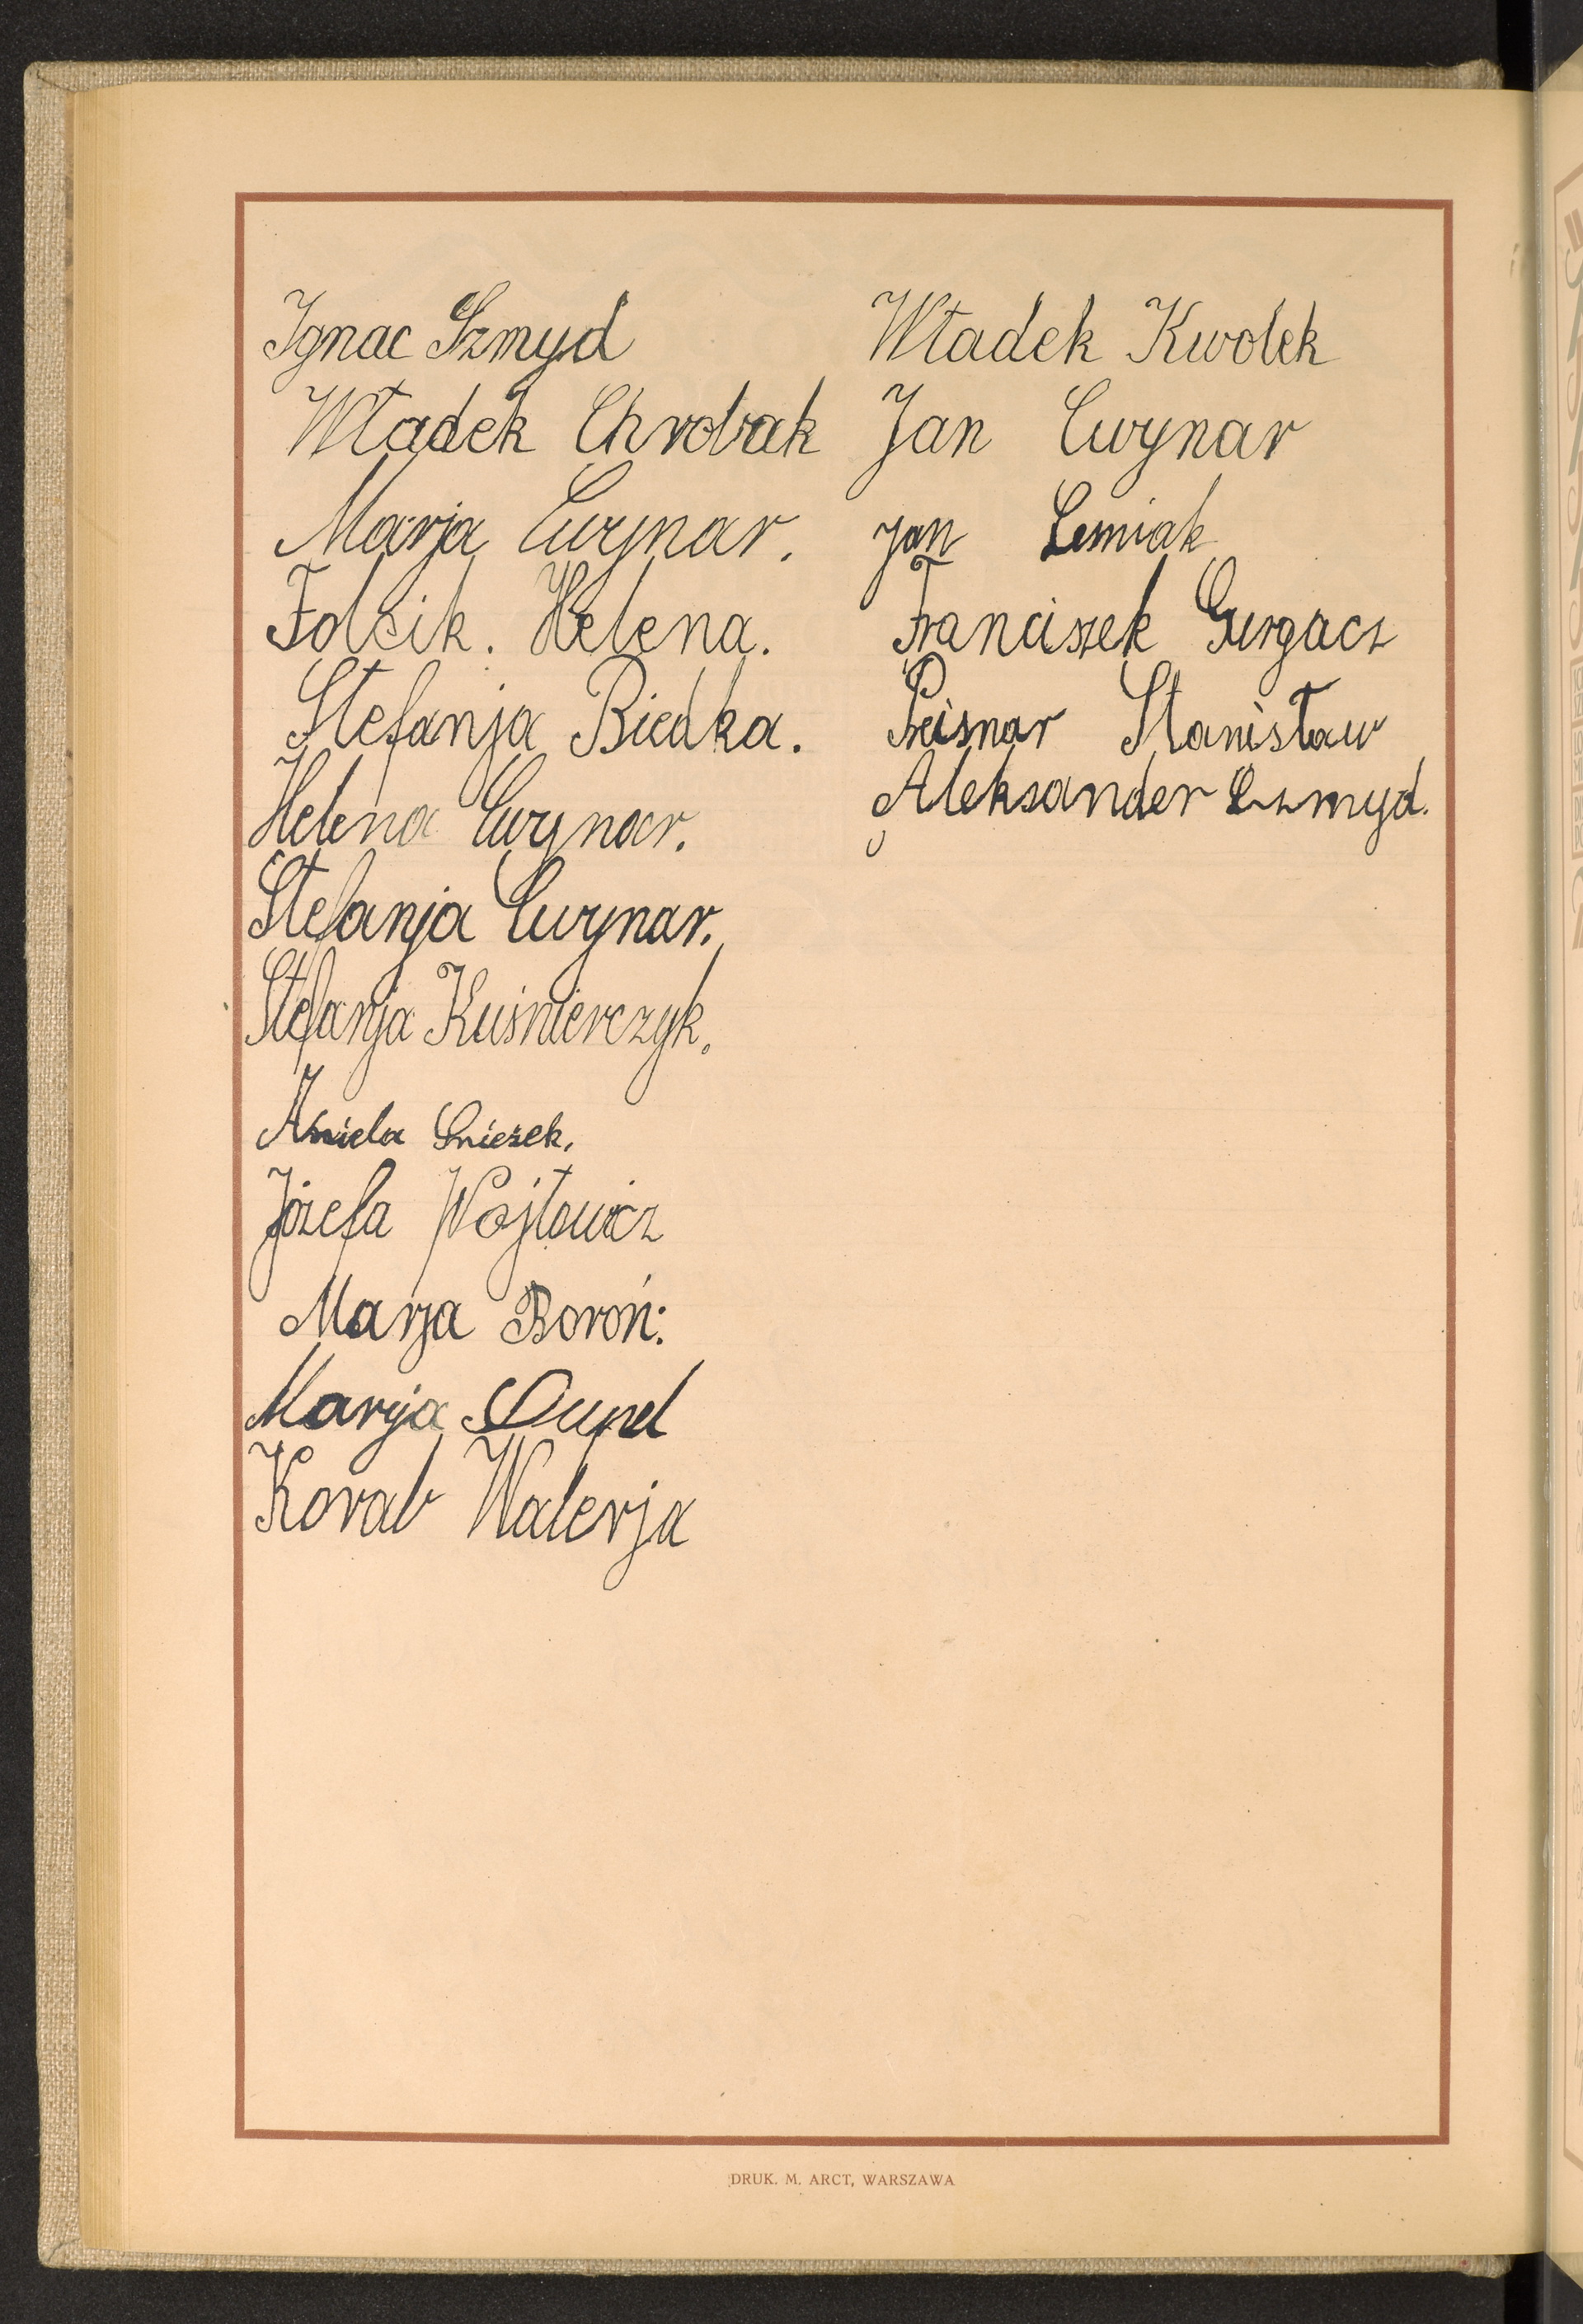 Ignac Szmyd
Władek Chrobak
Marja Cwynar.
Folcik. Helena.
Stefanja Biedka.
Helena Cwynar.
Stefanja Cwynar.
Stefanja Kuśnierczyk.
Aniela Śnieżek.
Józefa Wojtowicz
Marja Boroń.
Marja Dupel
Korab Walerja
Władek Kwolek
Jan Cwynar
Jan Lemiak
Franciszek Gurgacz
Preisnar Stanisław
Aleksander Szmyd.
DRUK. M. ARCT, WARSZAWA